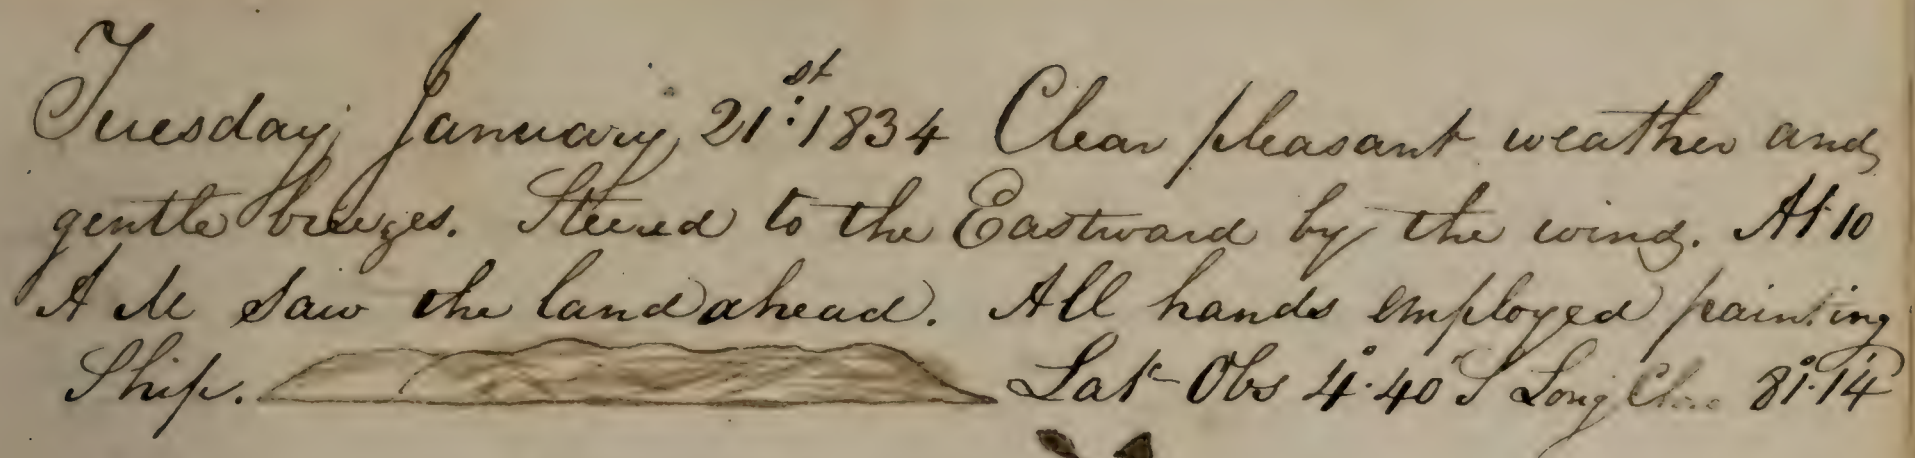 Tuesday January 21st: 1834 Clear pleasant weather and
gentle breezes. Steered to the Eastward by the wind. At 10
A M saw the land ahead. All hands employed painting
Ship. Lat Obs 4°.40' S Long 81°.14'